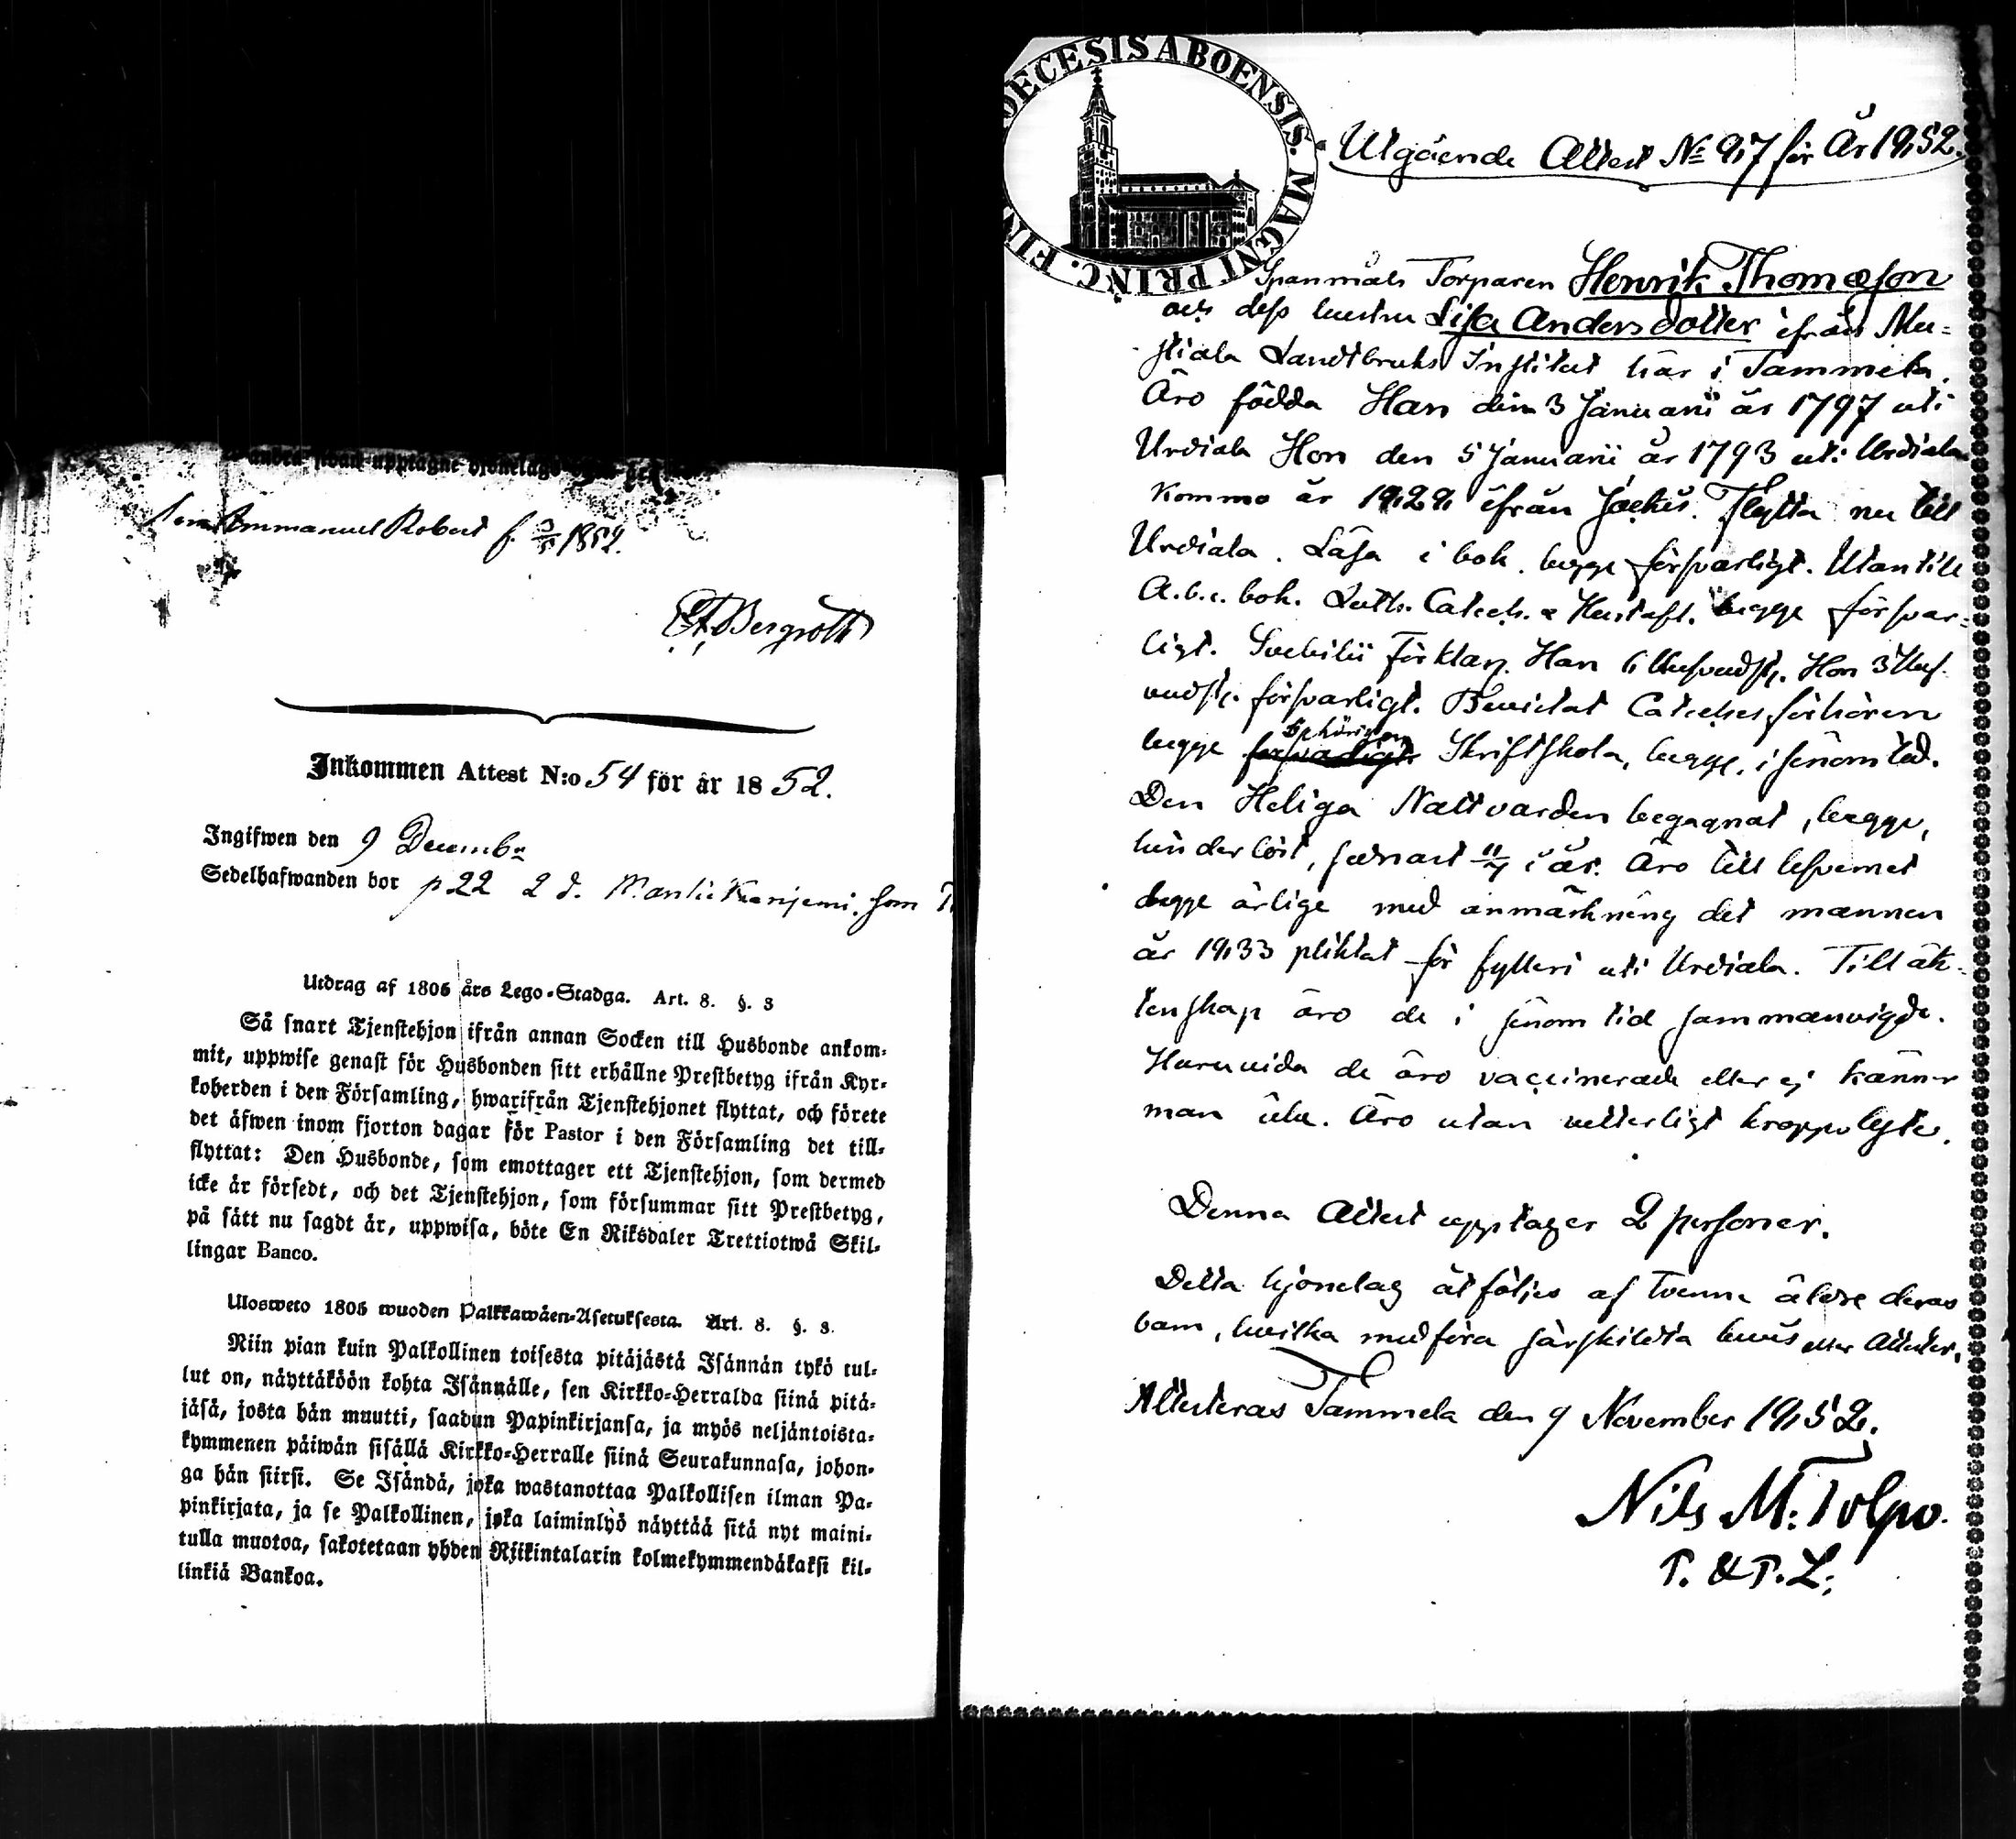 andre sidan upptagne hjonelags
son Emmanuel Robert f. 3/5 1852.
Bergroth
Inkommen Attest N:o 54 för år 1852.
Ingifwen den 9 Decembr
Sedelhafwanden bor p 22 2 d. som
Utdrag af 1805 års Lego-Stadga. Art. 8. §. 3
Så snart Tjenstehjon ifrån annan Socken till Husbonde ankom-
mit, uppwise genast för Husbonden sitt erhållne Prestbetyg ifrån Kyr-
koherden i den Församling, hwarifrån Tjenstehjonet flyttat, och förete
det äfwen inom fjorton dagar för Pastor i den Församling det till-
flyttat: Den Husbonde, som emottager ett Tjenstehjon, som dermed
icke är försedt, och det Tjenstehjon, som försummar sitt Prestbetyg,
på sätt nu sagdt är, uppwisa, böte En Riksdaler Trettiotwå Skil-
lingar Banco.
Ulosweto 1805 wuoden Palkkawäen-Asetuksesta. Art. 8. §. 3.
Niin pian kuin Palkollinen toisesta pitäjästä Isännän tykö tul-
lut on, näyttäköön kohta Isännälle, sen Kirkko-Herralda siinä pitä-
jäsä, josta hän muutti, saadun Papinkirjansa, ja myös neljäntoista-
kymmenen päiwän sisällä Kirkko-Herralle siinä Seurakunnasa, johon-
ga hän siirsi. Se Isändä, joka wastanottaa Palkollisen ilman Pa-
pinkirjata, ja se Palkollinen, joka laiminlyö näyttää sitä nyt maini-
tulla muotoa, sakotetaan yhden Riikintalarin kolmekymmendäkaksi kil-
linkiä Bankoa.
DECESIS ABOENSIS. MAGNI PRINC. FIN
Utgående Attest No 97 för År 1852.
Spanmåls Torparen Henrik Thomæson
och dess hustru Lisa Andersdotter ifrån Mu-
stiala Landtbruks Institut här i Tammela.
Äro födda Han den 3 Januarii år 1797 uti
Urdiala Hon den 5 Januarii år 1793 uti Urdiala
Kommo år 1828 ifrån Jockis. Flytta nu till
Urdiala. Läsa i bok. begge försvarligt. Utantill
A.b.c. bok. Luth. Catech. & Hustafl. begge försvar-
ligt. Svebilii Förklar. Han 6 Hufvudst. Hon 3 Huf-
vudst. försvarligt. Bevistat Catechesförhören
begge behörigen Skriftskola, begge, i sinom tid.
Den Heliga Nattvarden begagnat, begge,
hinderlöst, senast 11/7 i år. Äro till lefvernet
begge ärlige med anmärkning det mannen
år 1833 pliktat för fylleri uti Urdiala. Till äk-
tenskap äro de i sinom tid sammanvigde.
Huruvida de äro vaccinerade eller ej känner
man icke. Äro utan vetterligt kroppslyte.
Denna Attest upptager 2 personer.
Detta hjonelag åtföljes af tvenne äldre deras
barn, hvilka medföra särskildta bevis eller Attester.
Attesteras Tammela den 9 November 1852.
Nils M: Tolpo.
P. & P. L: